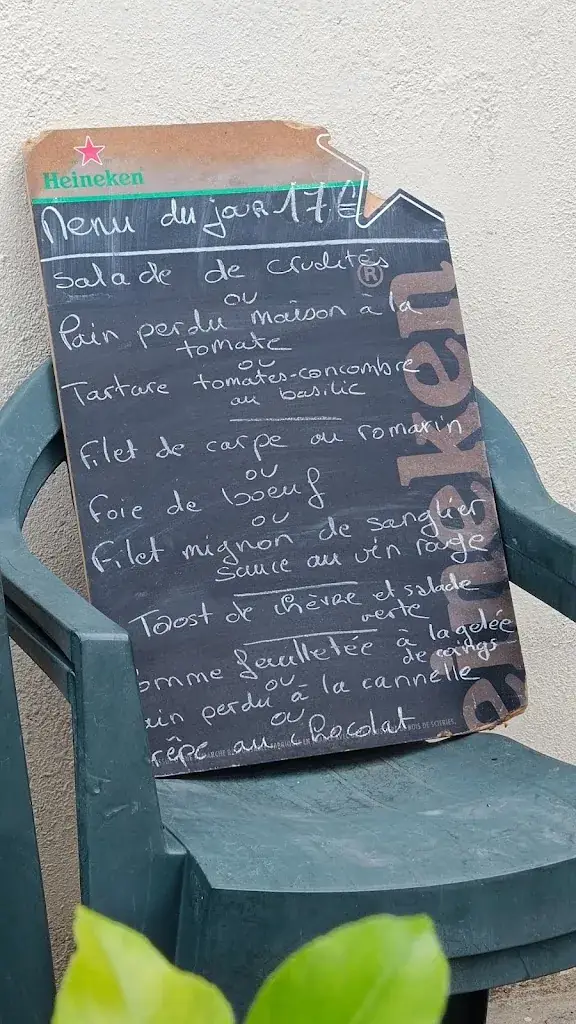 Heineken
Menu du jour 17 €
Salade de crudités
ou
Pain perdu maison à la
tomate
ou
Tartare tomates-concombre
au basilic
Filet de carpe au romarin
ou
Foie de boeuf
ou
Filet mignon de sanglier
sauce au vin rouge
Toast de chèvre et salade
verte
omme feuilletée à la gelée
de coings
ou
ain perdu à la cannelle
ou
rêpe au chocolat
®
eineken